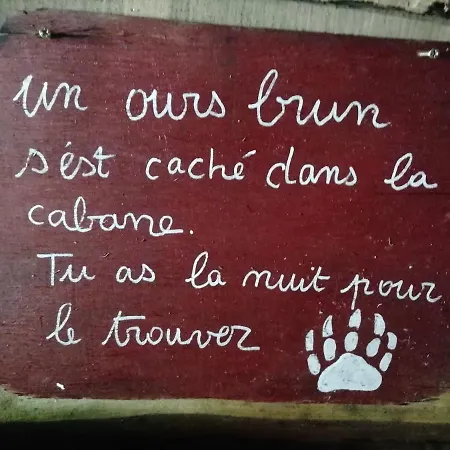 un ours brun
s'ést caché dans la
cabane.
Tu as la nuit pour
le trouver